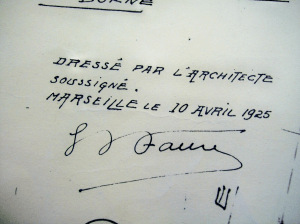 BORNE
DRESSÉ PAR L'ARCHITECTE
SOUSSIGNÉ.
MARSEILLE LE 10 AVRIL 1925